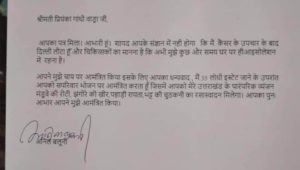 श्रीमती प्रियंका गांधी वाड्रा जी,
आपका पत्र मिला। आभारी हूं। शायद आपके संज्ञान में नहीं होगा कि मैं कैंसर के उपचार के बाद
दिल्ली लौटा हूँ और चिकित्सकों का मानना है कि अभी मुझे कुछ ओर समय घर पर ही आइसोलेशन
में रहना है।
आपने मुझे चाय पर आमंत्रित किया इसके लिए आपका धन्यवाद, मैं 35 लोधी इस्टेट जाने के उपरांत
आपको सपरिवार भोजन पर आमंत्रित करता हूँ जिसमें आपको मेरे उत्तराखंड के पारंपरिक व्यंजन
मंडुवे की रोटी, झंगोरे की खीर पहाड़ी रायता,भट्ट की चुठकनी का रसास्वादन मिलेगा। आपका पुनः
आभार आपने मुझे आमंत्रित किया।
अनिल बलूनी